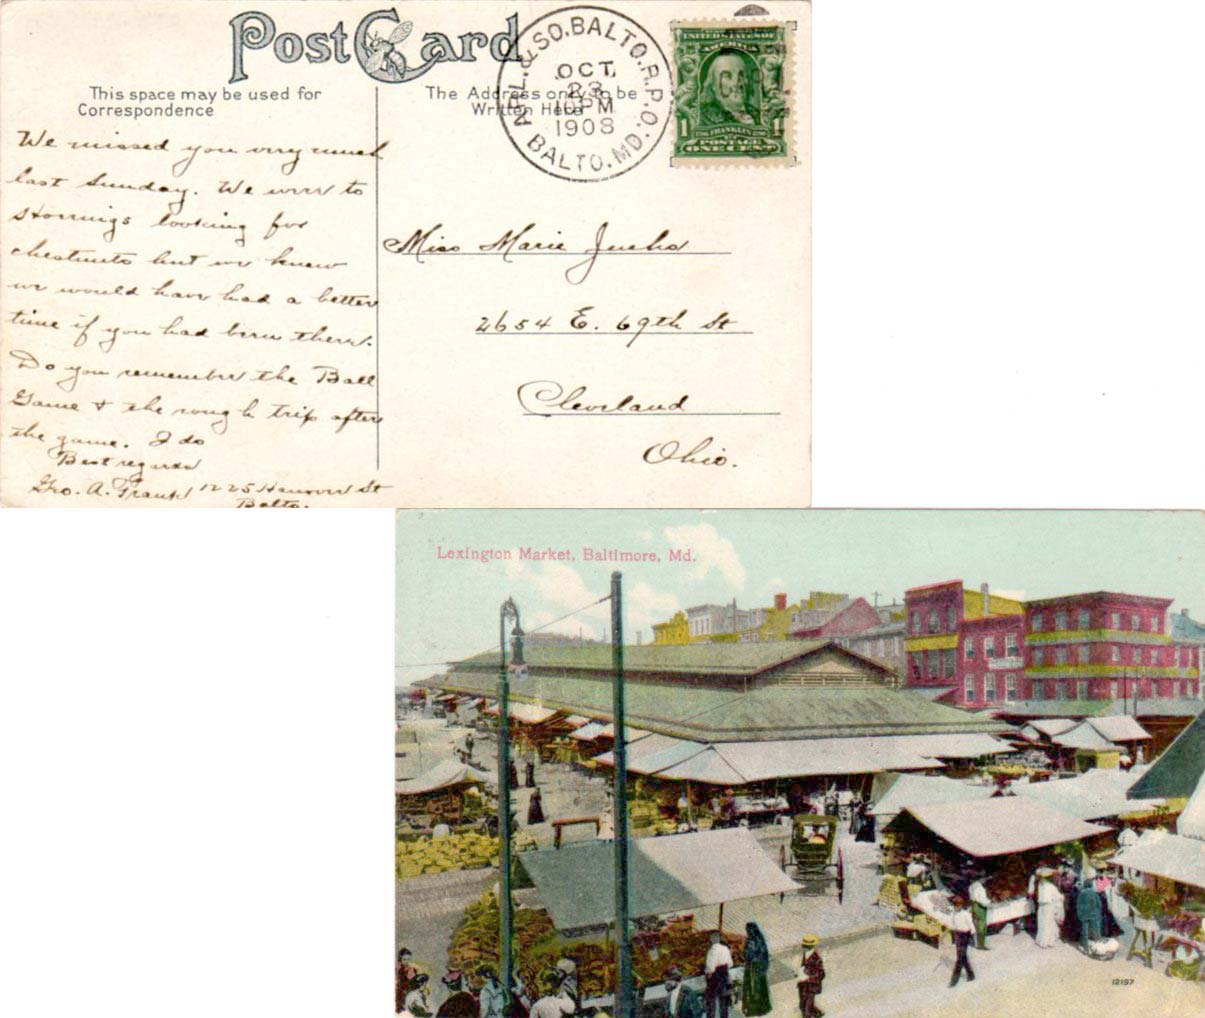 Post Card
This space may be used for
Correspondence
The Address only to be
Written Here
APL. & SO. BALTO. R.P.O.
OCT.
23
10 PM
1908
BALTO. MD.
UNITED STATES OF
AMERICA
1 FRANKLIN 1
POSTAGE
ONE CENT
We missed you very much
last Sunday. We were to
looking for
chestnuts but we knew
we would have had a better
time if you had been there.
Do you remember the Ball
Game & the rough trip after
the game. I do
Best regards
Geo. A. 1225 Hanover St
Balto.
Miss Marie
2654 E. 69th St
Cleveland
Ohio.
Lexington Market, Baltimore, Md.
12197